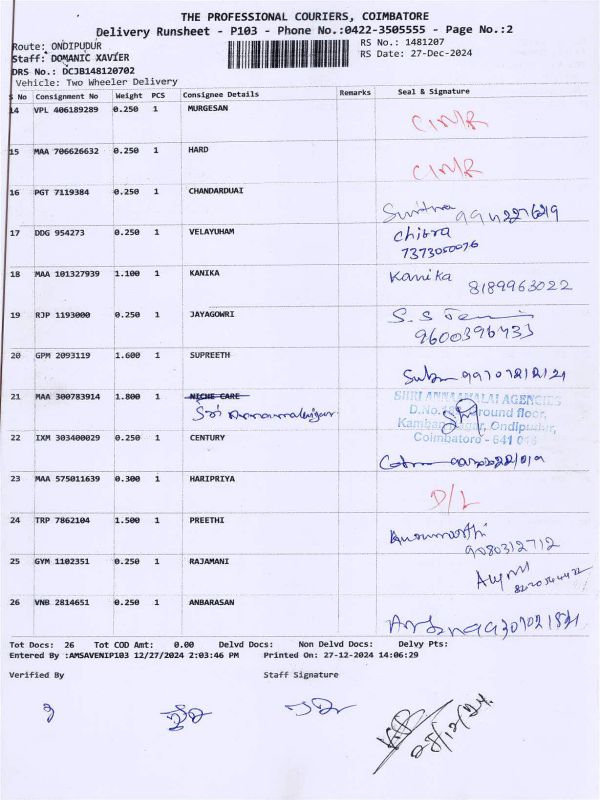 THE PROFESSIONAL COURIERS, COIMBATORE
Delivery Runsheet - P103 - Phone No.:0422-3505555 - Page No.:2
Route: ONDIPUDUR RS No.: 1481207
Staff: DOMANIC XAVIER RS Date: 27-Dec-2024
DRS No.: DCJB148120702
Vehicle: Two Wheeler Delivery
S No Consignment No Weight PCS Consignee Details Remarks Seal & Signature
14 VPL 406189289 0.250 1 MURGESAN
15 MAA 706626632 0.250 1 HARD
16 PGT 7119384 0.250 1 CHANDARDUAI
17 DDG 954273 0.250 1 VELAYUHAM Chitra
7373050076
18 MAA 101327939 1.100 1 KANIKA Kanika 8189963022
19 RJP 1193000 0.250 1 JAYAGOWRI
9600396433
20 GPM 2093119 1.600 1 SUPREETH
21 MAA 300783914 1.800 1 NICHE CARE SHRI ANNAAMALAI AGENCIES
Ground floor,
Nagar, Ondipudur,
Coimbatore - 641 016
22 IXM 303400029 0.250 1 CENTURY
23 MAA 575011639 0.300 1 HARIPRIYA D/L
24 TRP 7862104 1.500 1 PREETHI
9080312712
25 GYM 1102351 0.250 1 RAJAMANI
26 VNB 2814651 0.250 1 ANBARASAN
Tot Docs: 26 Tot COD Amt: 0.00 Delvd Docs: Non Delvd Docs: Delvy Pts:
Entered By :AMSAVENIP103 12/27/2024 2:03:46 PM Printed On: 27-12-2024 14:06:29
Verified By Staff Signature
28/12/24